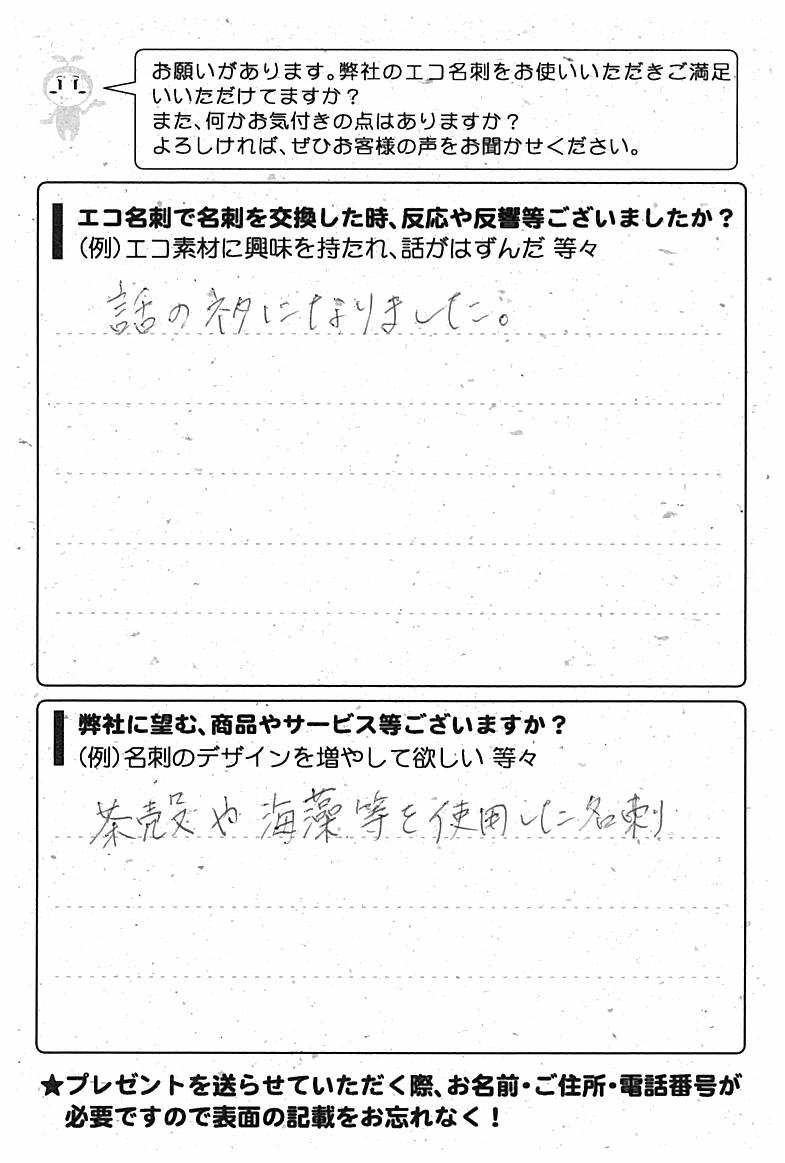 お願いがあります。弊社のエコ名刺をお使いいただきご満足
いいただけてますか？
また、何かお気付きの点はありますか？
よろしければ、ぜひお客様の声をお聞かせください。
エコ名刺で名刺を交換した時、反応や反響等ございましたか？
（例）エコ素材に興味を持たれ、話がはずんだ 等々
話のネタになりました。
弊社に望む、商品やサービス等ございますか？
（例）名刺のデザインを増やして欲しい 等々
茶殻や海藻等を使用した名刺
★プレゼントを送らせていただく際、お名前・ご住所・電話番号が
必要ですので表面の記載をお忘れなく！